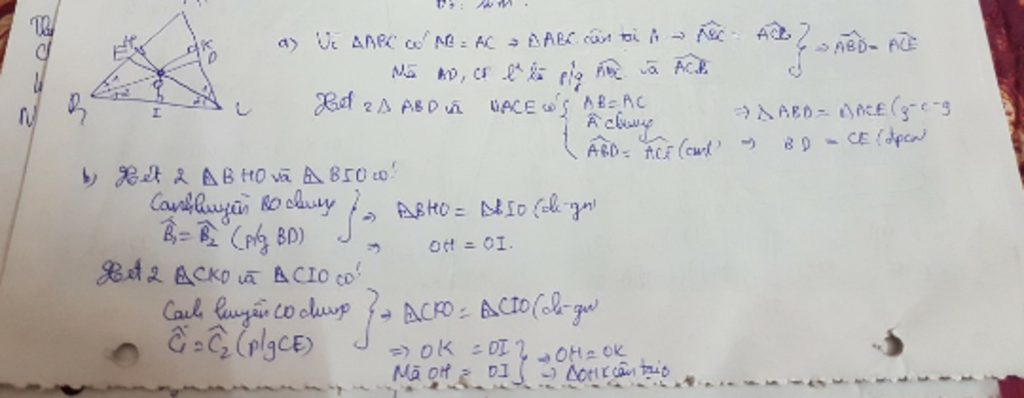 a) Vì ΔABC có AB = AC ⇒ ΔABC cân tại A ⇒ ∠ABC = ∠ACB } ⇒ ∠ABD = ∠ACE
Mà BD, CE l² là p/g ∠ABC và ∠ACB
Xét 2 Δ ABD và ΔACE có { AB = AC
 chung ⇒ Δ ABD = ΔACE (g-c-g
∠ABD = ∠ACE (cmt) ⇒ BD = CE (đpcm)
b) Xét 2 ΔBHO và ΔBIO có
Cạnh huyền BO chung } ⇒ ΔBHO = ΔBIO (ch-gn)
B̂₁ = B̂₂ (p/g BD) ⇒ OH = OI.
Xét 2 ΔCKO và ΔCIO có
Cạnh huyền CO chung } ⇒ ΔCKO = ΔCIO (ch-gn)
Ĉ₁ = Ĉ₂ (p/g CE)
⇒ OK = OI } ⇒ OH = OK
Mà OH = OI } ⇒ ΔOHK cân tại O